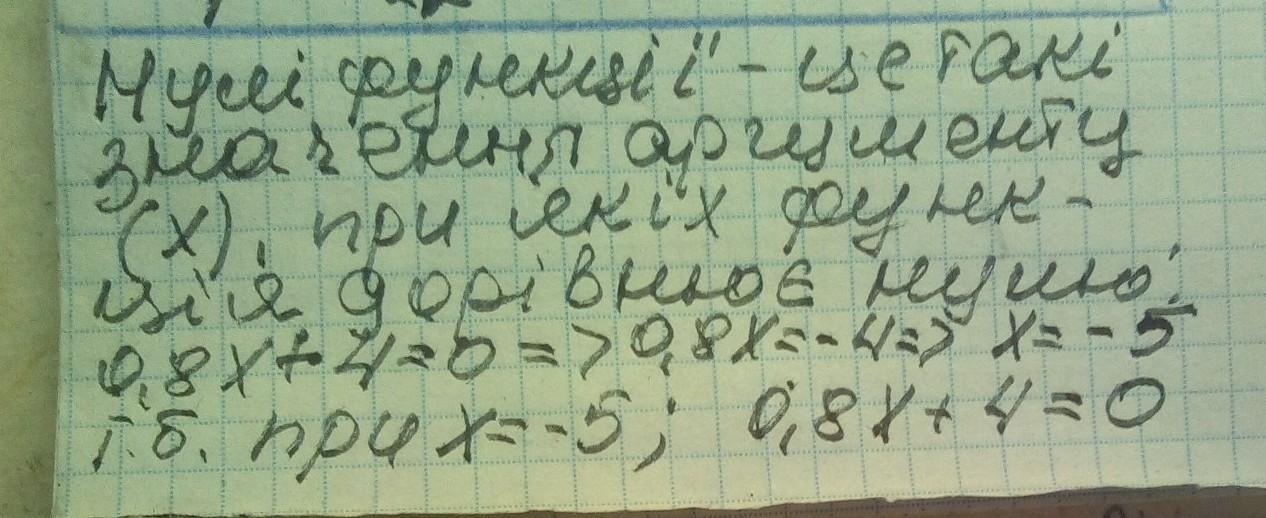 Нулі функції - це такі
значення аргументу
(x), при яких функ-
ція дорівнює нулю:
0,8x+4=0=>0,8x=-4=> x=-5
т.б. при x=-5; 0,8x+4=0